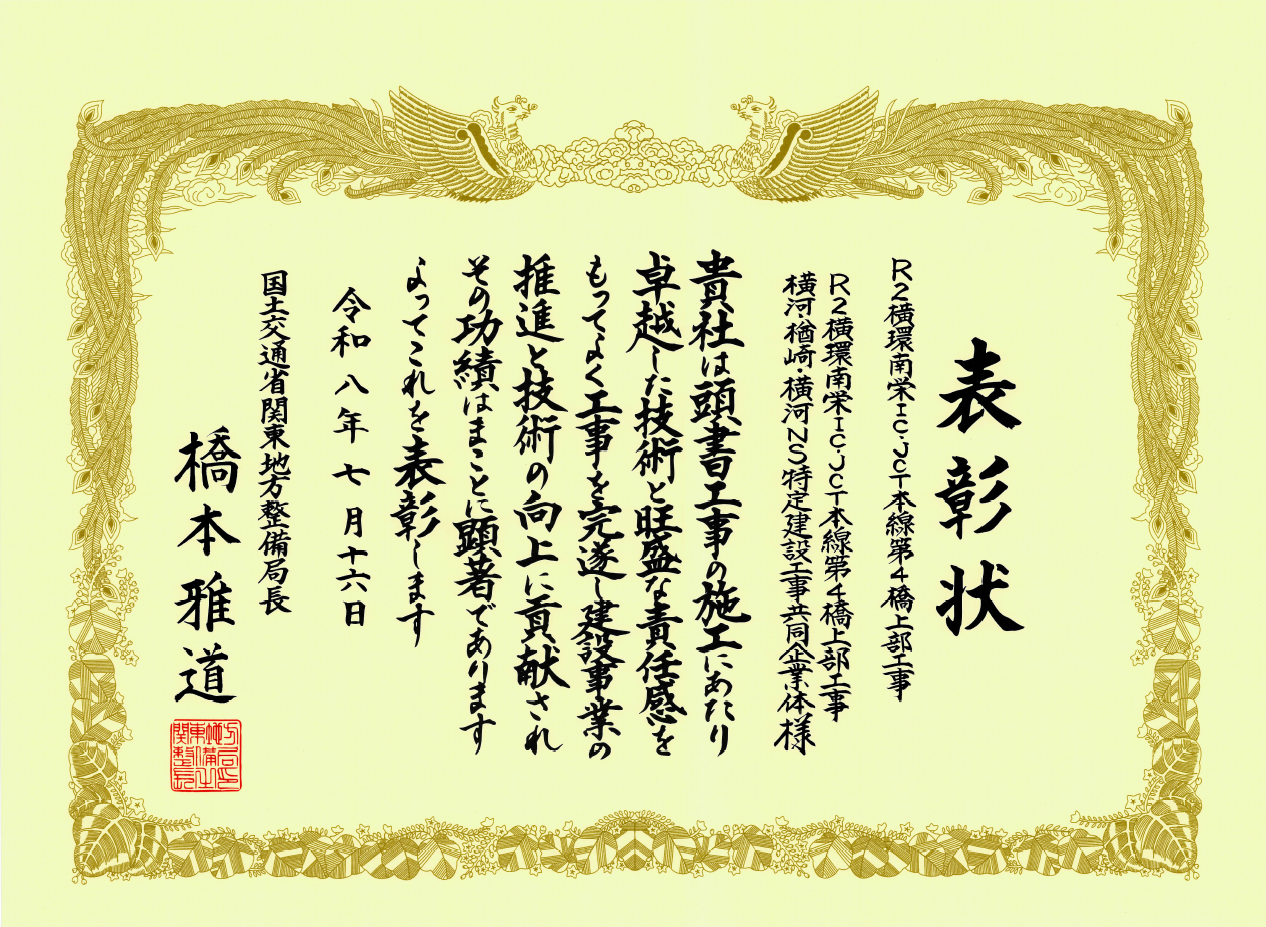 表彰状
R2横環南栄IC・JCT本線第4橋上部工事
R2横環南栄IC・JCT本線第4橋上部工事
横河・楢崎・横河NS特定建設工事共同企業体様
貴社は頭書工事の施工にあたり
卓越した技術と旺盛な責任感を
もってよく工事を完遂し建設事業の
推進と技術の向上に貢献され
その功績はまことに顕著であります
よってこれを表彰します
令和八年七月十六日
国土交通省関東地方整備局長
橋本雅道